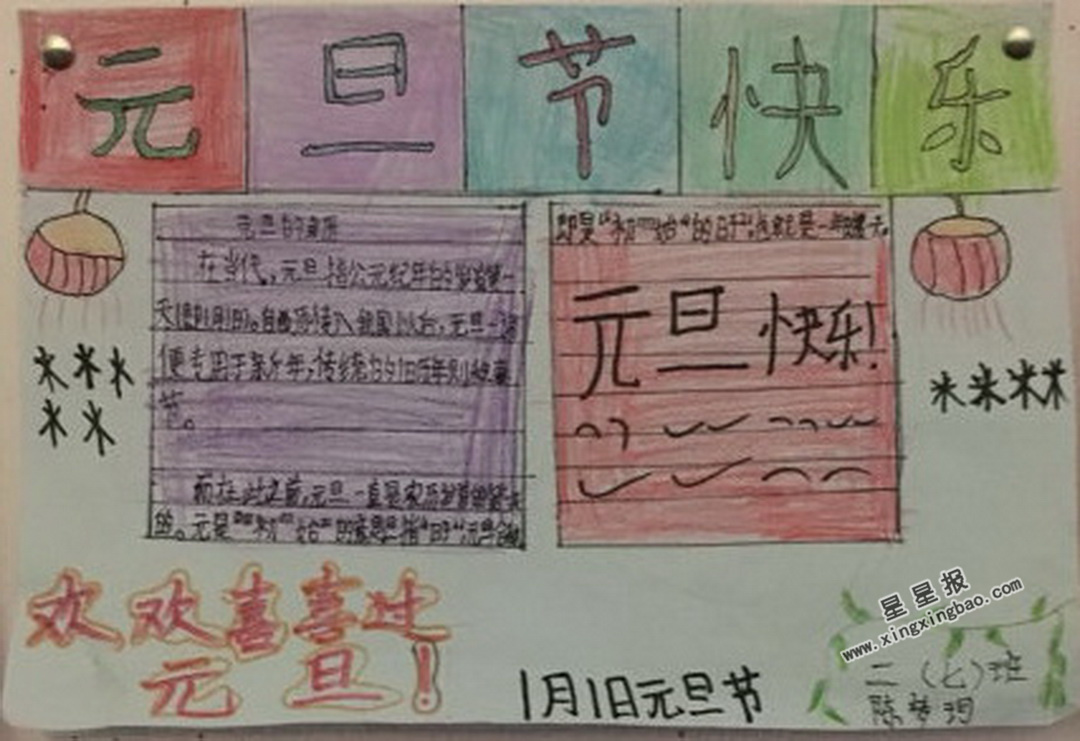 元旦节快乐
元旦的来历
在当代，元旦指公元纪年的岁首第一
天1月1日。自西历传入我国以后，元旦一词
便专用于新年，传统的旧历年则
节。
而在此之前，元旦一直是农历岁首
的。元是"初""始"的意思旦指"日"元旦合
即是"初始"的日子也就是一年的第一天。
元旦快乐！
欢欢喜喜过
元旦！
1月1日元旦节
星星报
www.xingxingbao.com
二（七）班
陈梦玥